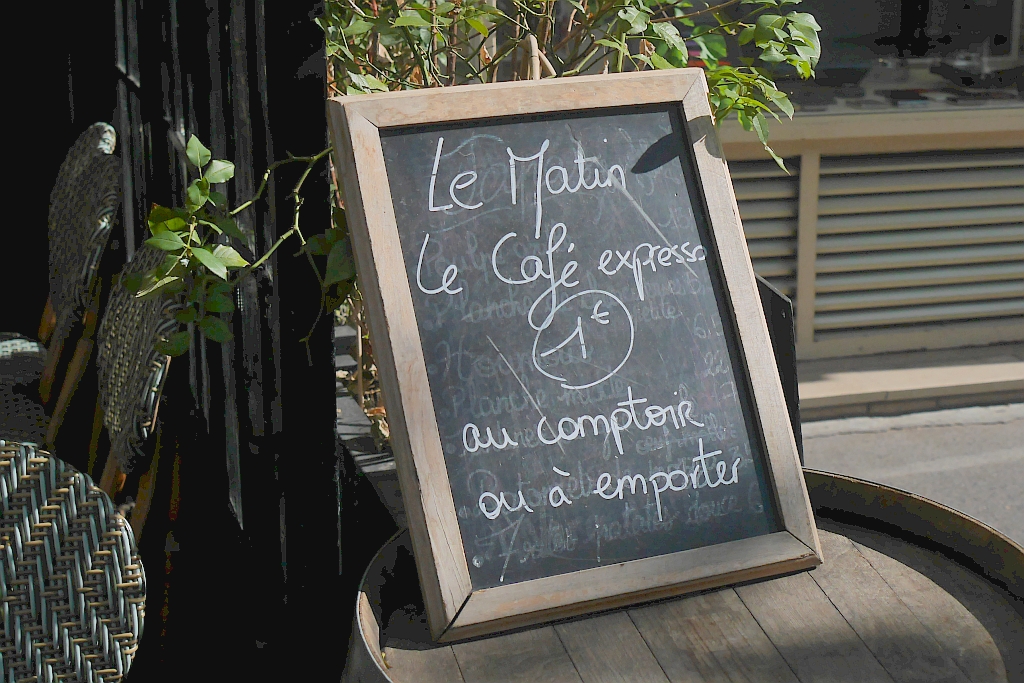 Le Matin
Le Café expresso
1€
au comptoir
ou à emporter